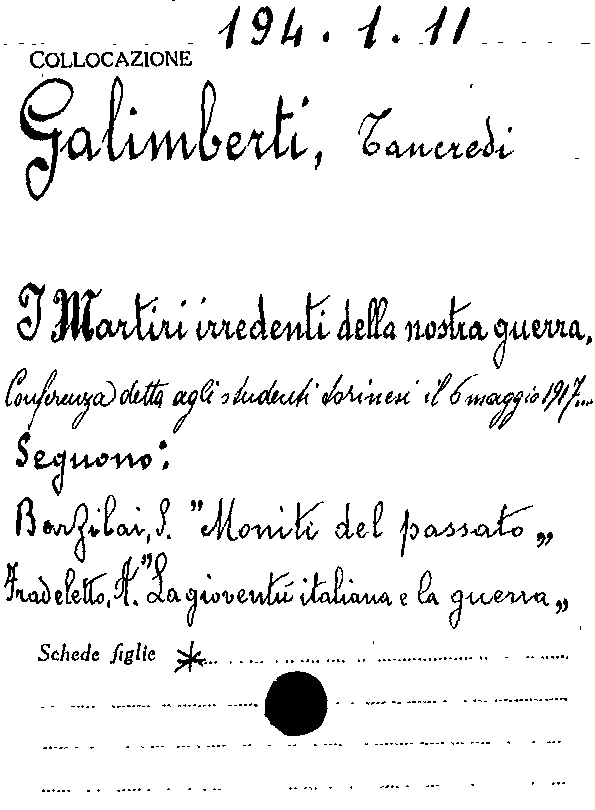 194.1.11
COLLOCAZIONE
Galimberti, Tancredi
I Martiri irredenti della nostra guerra.
Conferenza detta agli studenti torinesi il 6 maggio 1917...
Seguono:
Barzilai, S. "Moniti del passato„
Fradeletto, A. "La gioventù italiana e la guerra„
Schede figlie *